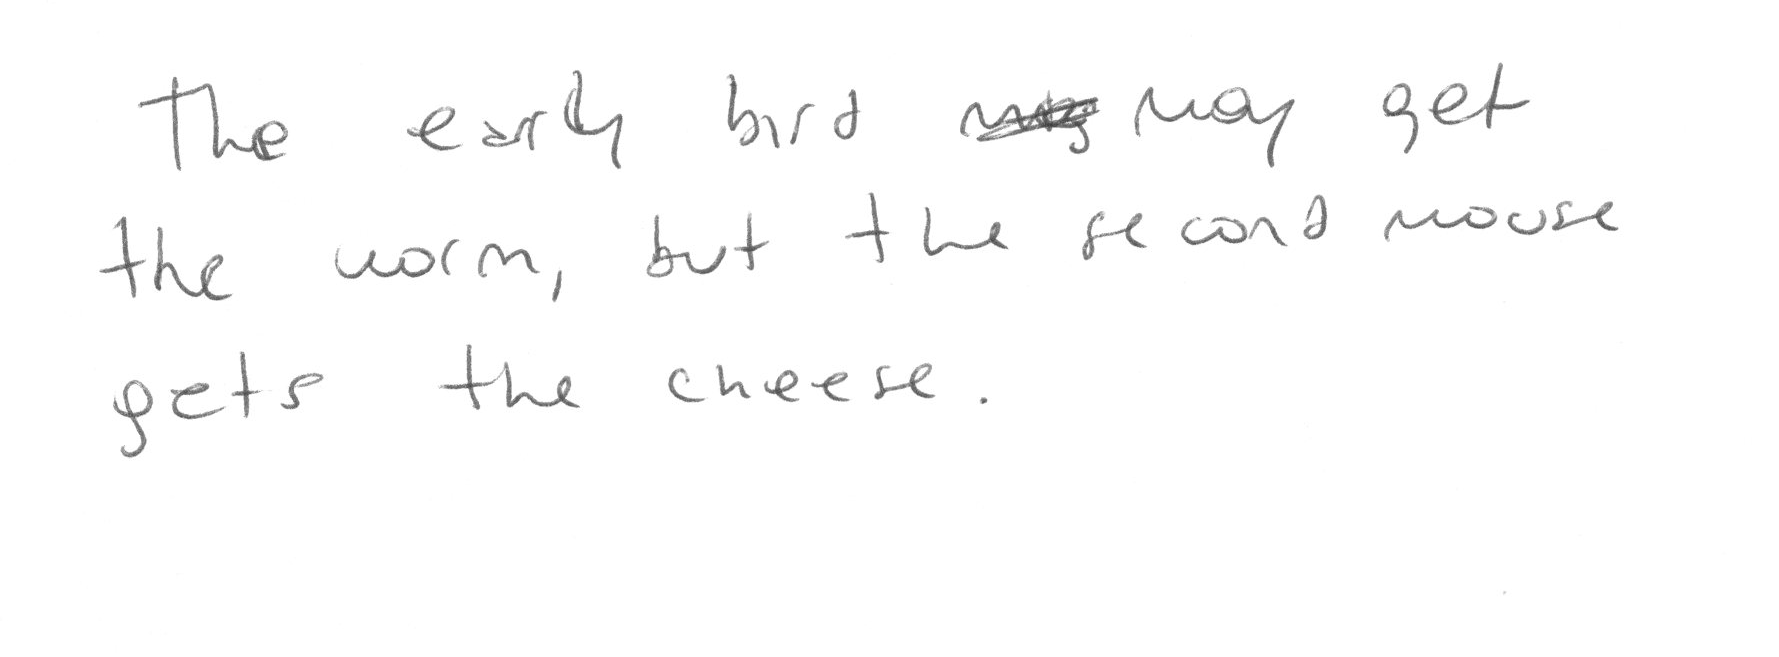 The early bird may get
the worm, but the second mouse
gets the cheese.